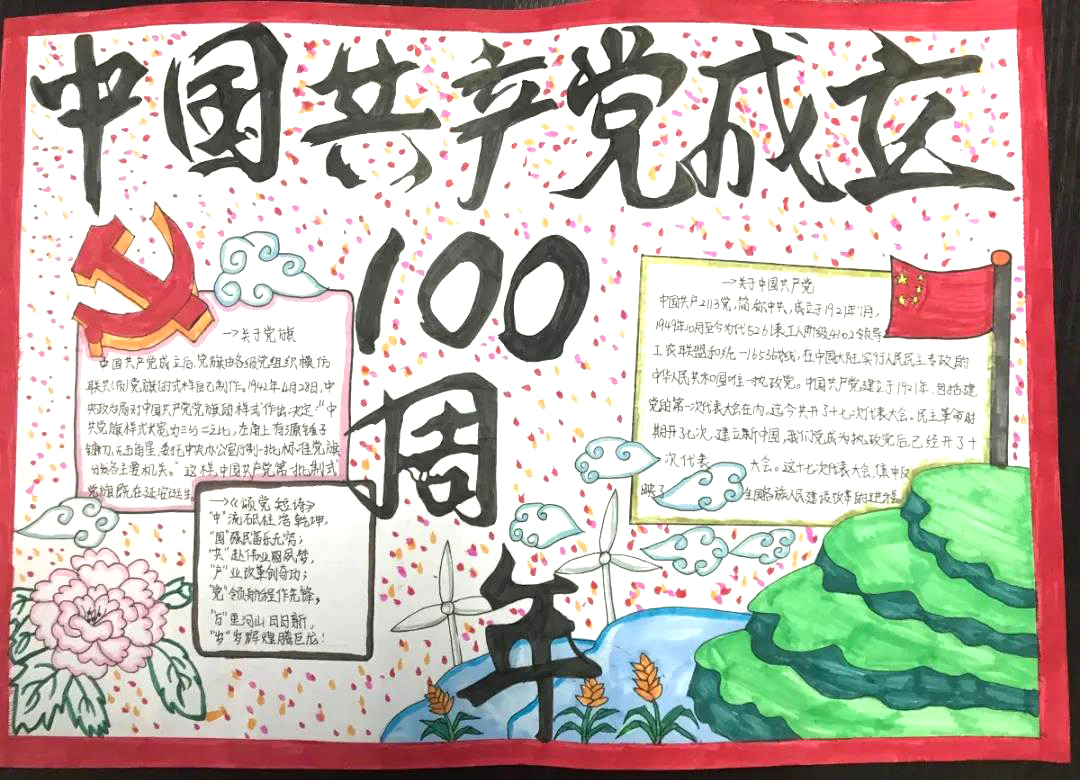 中国共产党成立
100
周
年
→关于党旗
中国共产党成立后,党旗由各级党组织模仿
联共(布)党旗的式样自己制作。1942年4月28日,中
央政治局对中国共产党党旗的样式作出决定:"中
共党旗样式长宽为三与二之比,左角上有源锤子
镰刀,无五角星,委托中央办公厅制一批标准党旗
分发各主要机关。"这样,中国共产党第一批制式
党旗既在延安诞生
→《颂党短诗》
"中"流砥柱浩乾坤,
"国"强民富乐无穷;
"共"赴伟业圆夙梦,
"产"业改革创奇功;
"党"领航程作先锋,
"万"里河山日日新,
"岁"岁辉煌腾巨龙!
→关于中国共产党
中国共产2113党,简称中共,成立于1921年7月,
1949年10月至今为代5261表工人阶级4102领导
工农联盟和统一1653战线,在中国大陆实行人民民主专政的
中华人民共和国唯一执政党。中国共产党建立于1921年,包括建
党的第一次代表大会在内,迄今共开了十七次代表大会。民主革命时
期开了七次,建立新中国,我们党成为执政党后已经开了十
次代表 大会。这十七次代表大会,集中反
映了 全国各族人民建设改革的